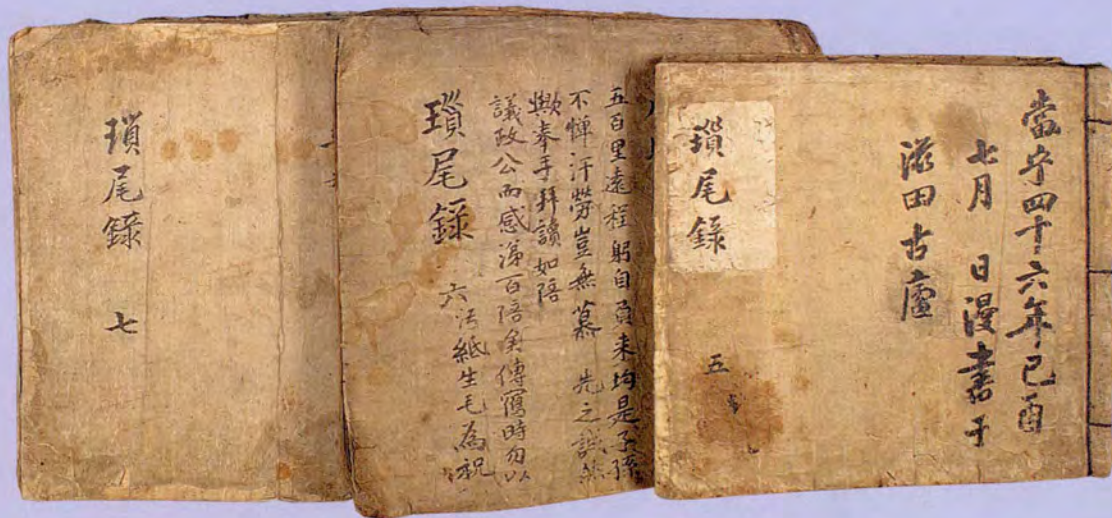 當宁四十六年己酉
七月 日漫書于
滋田古廬
瑣尾錄
五
五百里遠程躬自負來均是子孫
不憚汗勞豈無慕 先之誠然
歟奉手拜讀如陪
議政公而感涕百陪矣傳寫時勿以
污紙生毛為祝
瑣尾錄 六
瑣尾錄 七